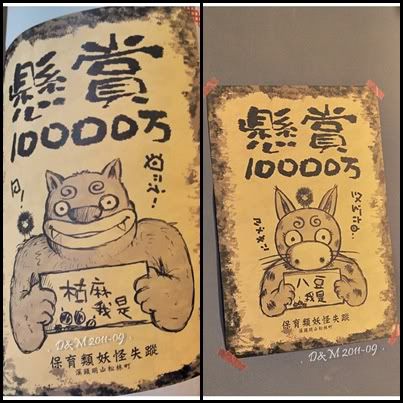 懸賞
10000万
枯麻
我是
保育類妖怪失蹤
溪頭明山松林町
D&M 2011-09
懸賞
10000万
八豆
我是
保育類妖怪失蹤
溪頭明山松林町
D&M 2011-09